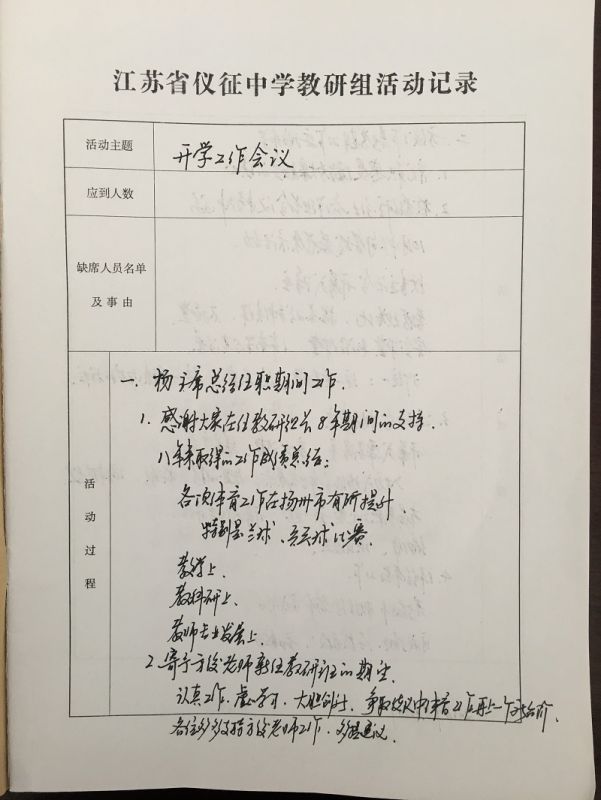 江苏省仪征中学教研组活动记录
活动主题
开学工作会议
应到人数
缺席人员名单
及事由
活动过程
一、杨主席总结任职期间工作.
1. 感谢大家在任教研组长8年期间的支持.
八年来取得的工作成绩总结:
各项体育工作在扬州市有所提升
特别是兰球、乒乓球比赛.
教学上.
教科研上.
教师专业发展上.
2. 寄予方俊老师新任教研组的期望
认真工作、虚心学习、大胆创新、争取仪中体育工作再上一个新台阶.
各位多多支持方俊老师工作、多提建议.